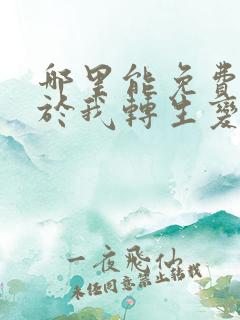 哪里能免費
於我轉生變
一夜飛仙
未經同意禁止轉載